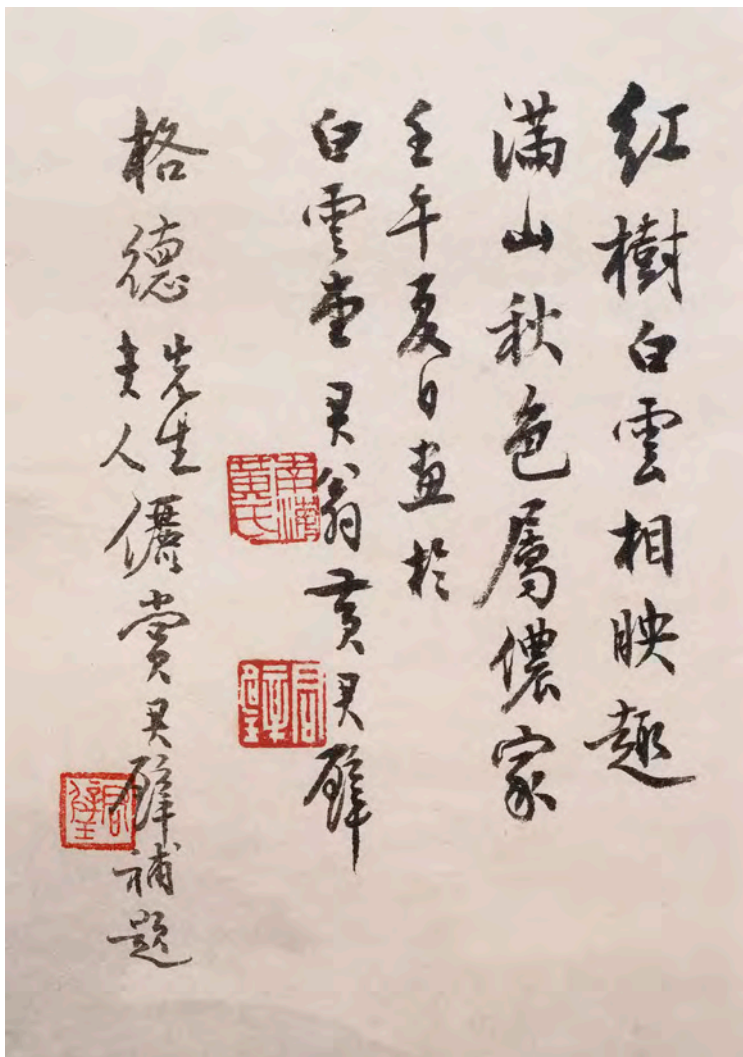 紅樹白雲相映趣
滿山秋色屬儂家
壬午夏日畫於
白雲堂君翁黃君璧
格德先生夫人儷賞君璧補題
南海黃氏
君璧